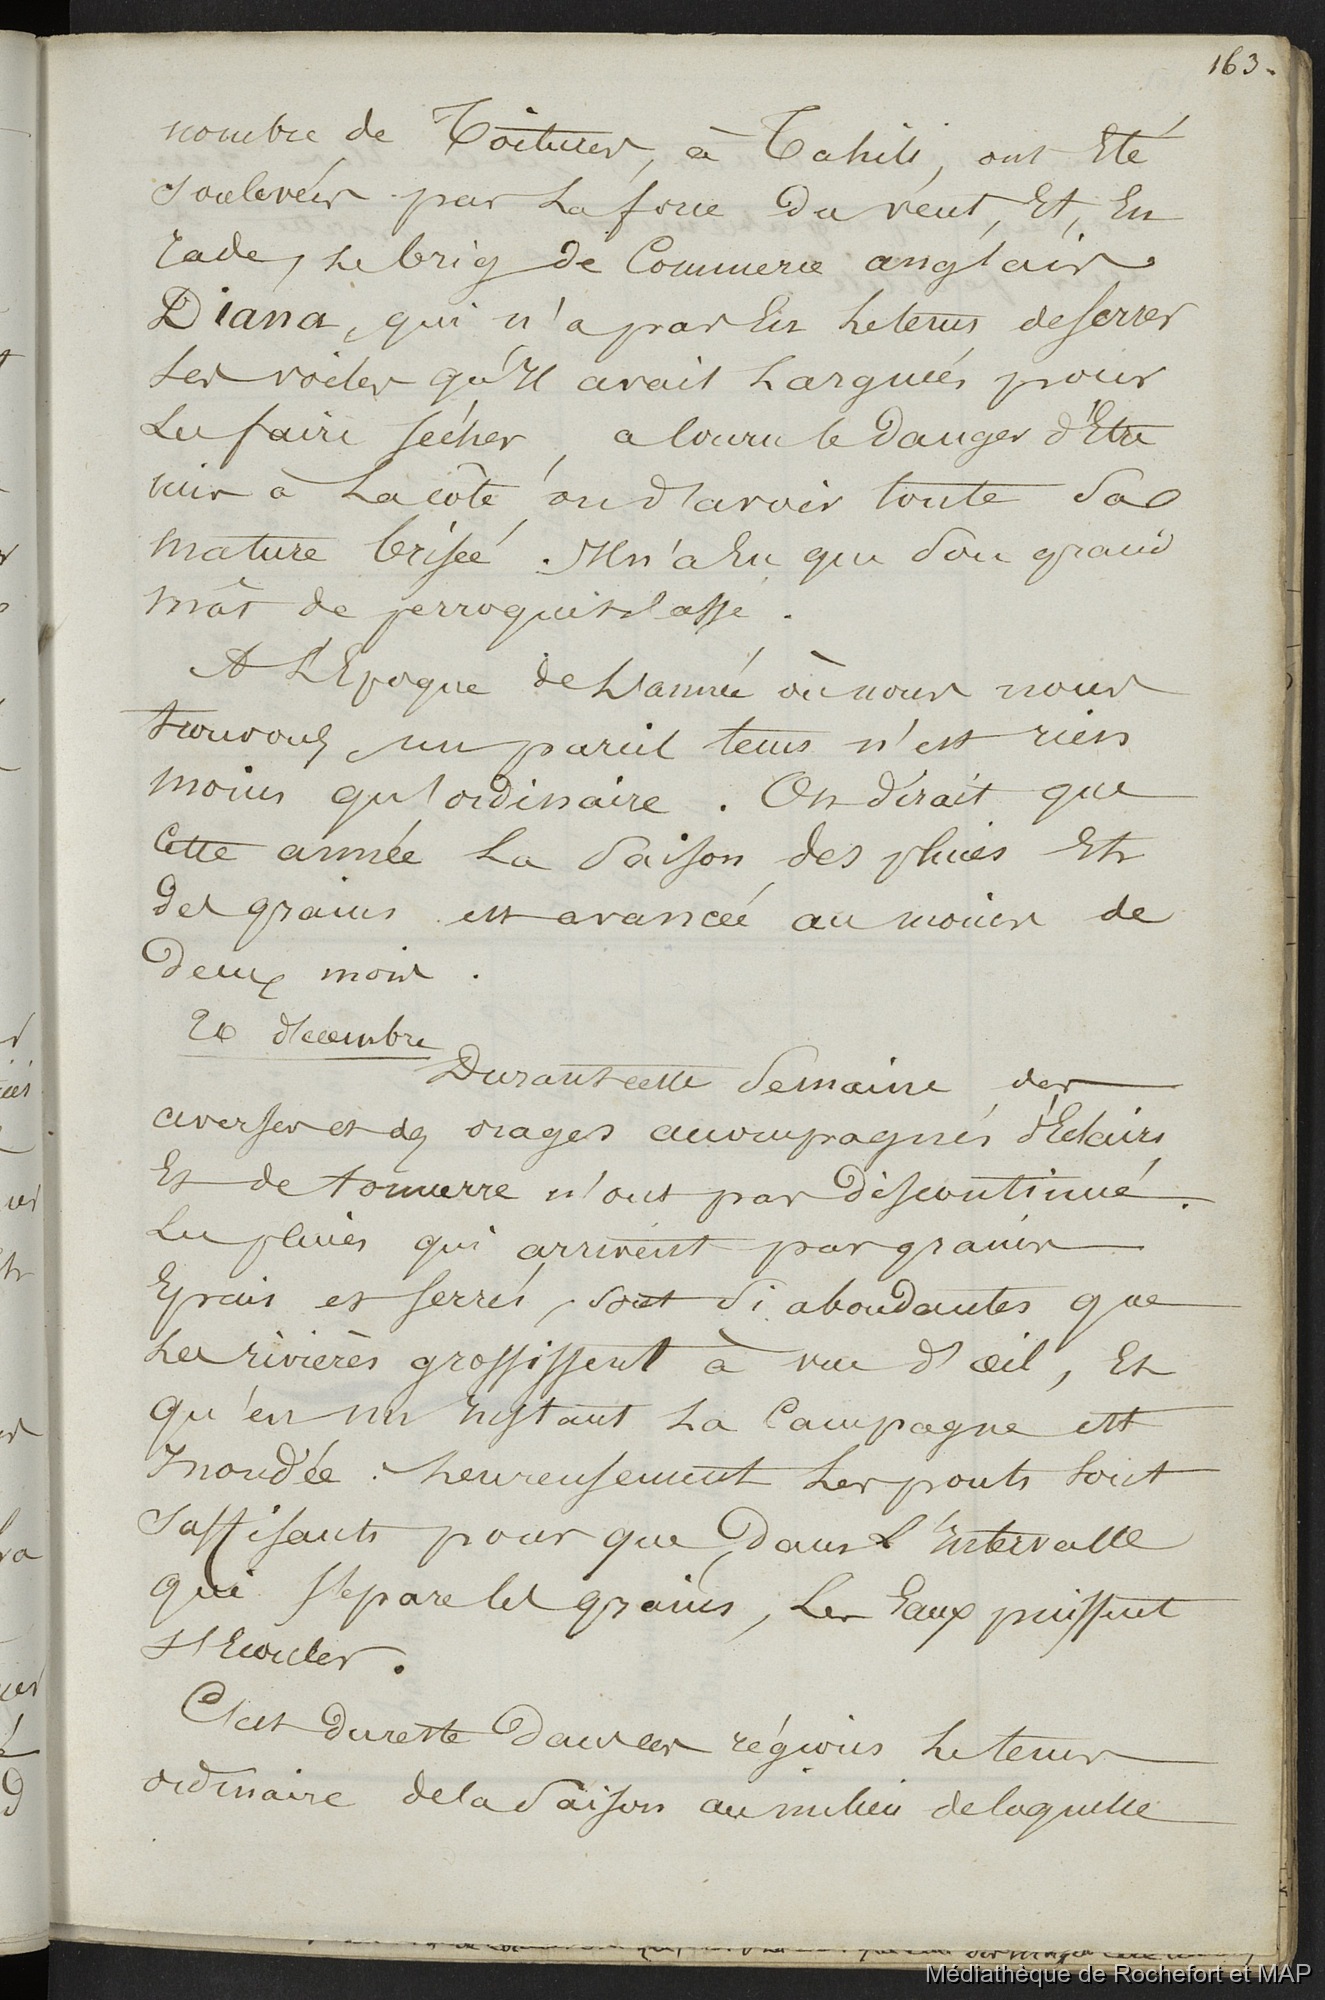 163.
nombre de Toitures, à Tahiti, ont Eté
soulevées par La force du vent, Et, En
rade, Le brig de Commerce anglais
Diana, qui n'a pas Eu Le tems de serrer
Les voiles qu'Il avait Larguées pour
Les faire sécher, a couru le danger d'Etre
mis à La côte, ou d'avoir toute Sa
mature brisée. Il n'a Eu que Son grand
mât de perroquet cassé.
A L'Epoque de L'année où nous nous
trouvons, un pareil tems n'est rien
moins qu'ordinaire. On dirait que
Cette année La Saison des pluies Et
des grains est avancée au moins de
Deux mois.
20 décembre
Durant cette Semaine des
averses et des orages accompagnés d'Eclairs
Et de tonnerre n'ont pas discontinué.
Les pluies qui arrivent par grains
Epais et serrés, sont Si abondantes que
Les rivières grossissent à vue d'œil, Et
qu'en un Instant La Campagne est
Inondée. heureusement Les ponts sont
suffisants pour que, dans L'Intervalle
qui sépare les grains, Les Eaux puissent
s'Ecouler.
C'est du reste dans ces régions Le tems
ordinaire de la Saison au milieu de laquelle
Médiathèque de Rochefort et MAP